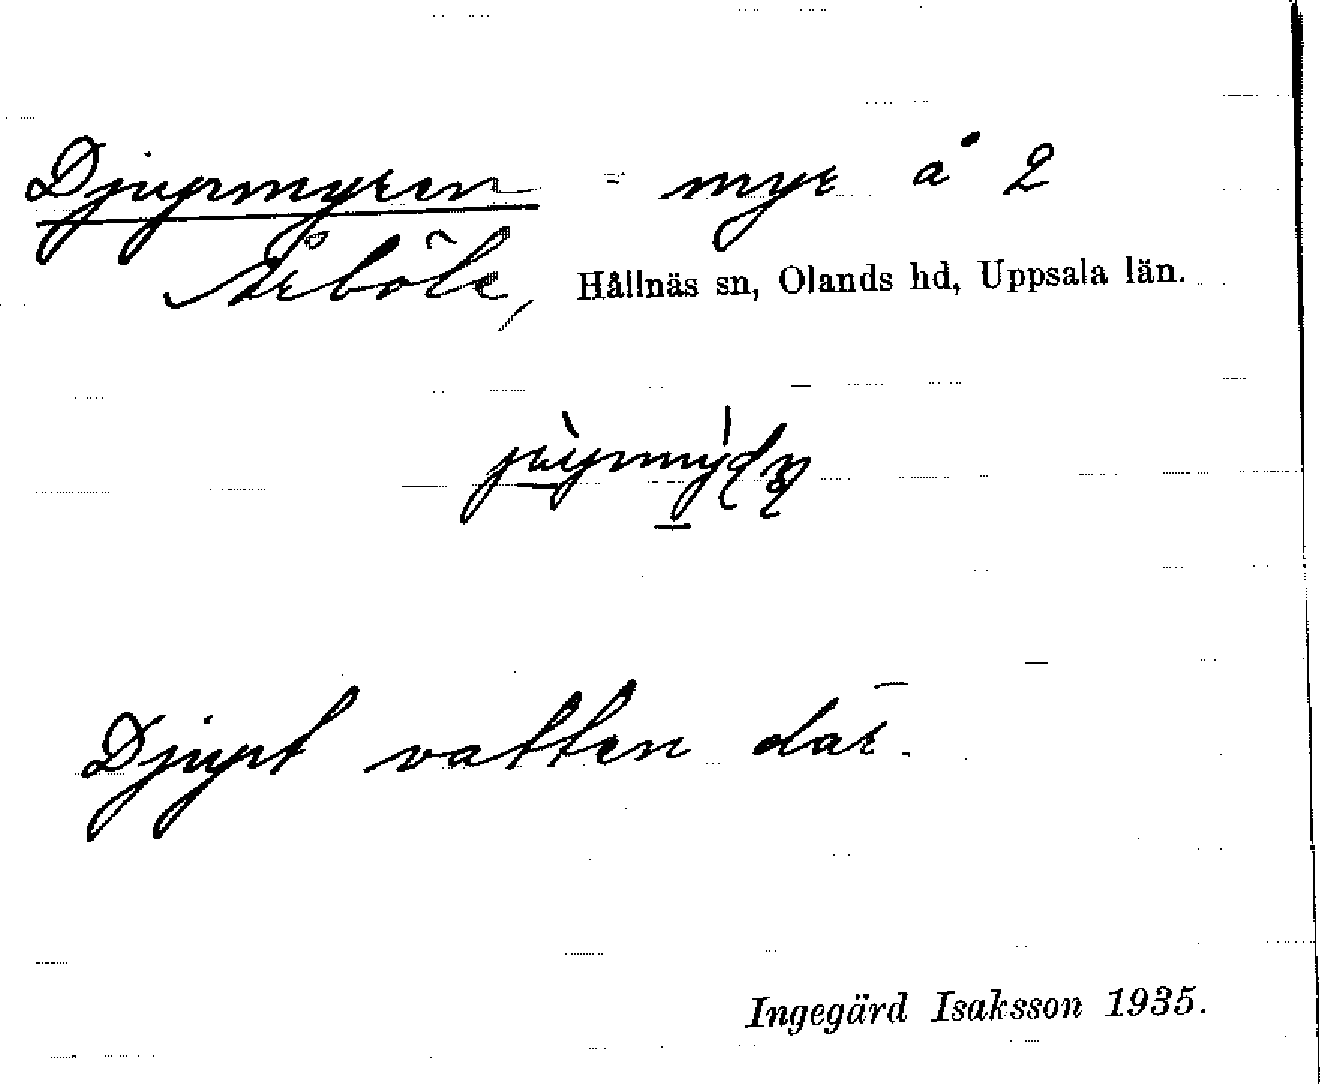 Djupmyren = myr å 2
Årböle, Hållnäs sn, Olands hd, Uppsala län.
Djupt vatten där.
Ingegärd Isaksson 1935.